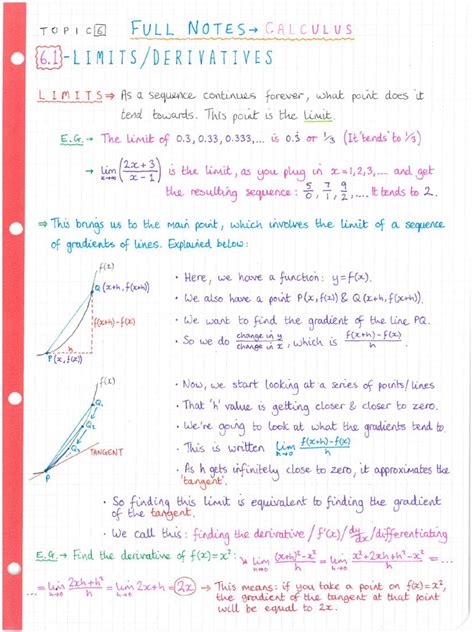 TOPIC 6 FULL NOTES → CALCULUS
6.1 - LIMITS/DERIVATIVES
LIMITS ⇒ As a sequence continues forever, what point does it
tend towards. This point is the limit.
E.G. → The limit of 0.3, 0.33, 0.333,... is 0.3̇ or 1/3 (It 'tends to' 1/3)
→ lim x→∞ (2x+3 / x-1) is the limit, as you plug in x=1,2,3,.... and get
the resulting sequence: 5/0, 7/1, 9/2, .... It tends to 2.
⇒ This brings us to the main point, which involves the limit of a sequence
of gradients of lines. Explained below:
f(x)
Q (x+h, f(x+h))
f(x+h)-f(x)
h
P (x, f(x))
• Here, we have a function: y=f(x).
• We also have a point P(x,f(x)) & Q(x+h,f(x+h)).
• We want to find the gradient of the line PQ.
• So we do change in y / change in x, which is f(x+h)-f(x) / h
f(x)
Q
Q₁
Q₂
TANGENT
P
• Now, we start looking at a series of points/lines
• That 'h' value is getting closer & closer to zero.
• We're going to look at what the gradients tend to.
• This is written lim h→0 f(x+h)-f(x) / h
• As h gets infinitely close to zero, it approximates the
'tangent'.
• So finding this limit is equivalent to finding the gradient
of the tangent.
• We call this: finding the derivative / f'(x) / dy/dx / differentiating
E.G. → Find the derivative of f(x)=x²: lim h→0 (x+h)²-x² / h = lim h→0 x²+2xh+h²-x² / h
... = lim h→0 2xh+h² / h = lim h→0 2x+h = 2x → This means: if you take a point on f(x)=x²,
the gradient of the tangent at that point
will be equal to 2x.